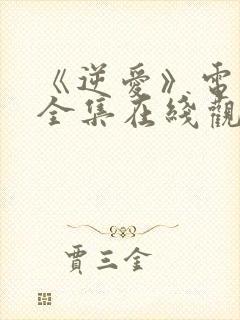 《逆愛》電
全集在綫觀
賈三金